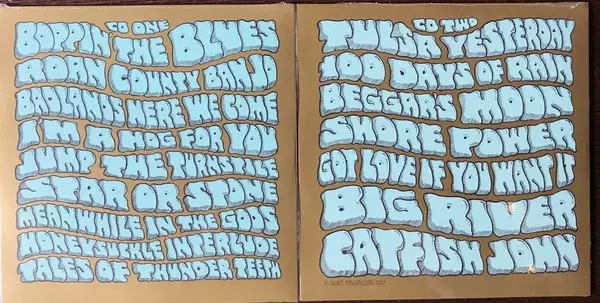 CD ONE
BOPPIN THE BLUES
ROAN COUNTY BANJO
BADLANDS HERE WE COME
I'M A HOG FOR YOU
JUMP THE TURNSTILE
STAR OR STONE
MEANWHILE IN THE GODS
HONEYSUCKLE INTERLUDE
TALES OF THUNDER TEETH
CD TWO
TULSA YESTERDAY
100 DAYS OF RAIN
BEGGARS MOON
SHORE POWER
GOT LOVE IF YOU WANT IT
BIG RIVER
CATFISH JOHN